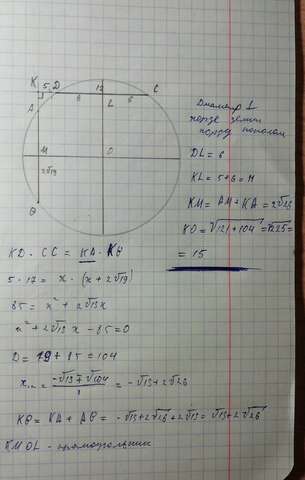 K 5 D 12 C
6 6
A L
M O
2√19
B
Диаметр ⊥
хорде делит
хорду пополам
DL = 6
KL = 5+6 = 11
KM = AM + KA = 2√26
KO = √121+104 = √225 =
= 15
KD · CC = KA · KB
5 · 17 = x · (x + 2√19)
85 = x² + 2√19x
x² + 2√19x - 85 = 0
D = 19 + 85 = 104
= -√19 + 2√26
KB = KA + AB = -√19 + 2√26 + 2√19 = √19 + 2√26
KMOL - прямоугольник